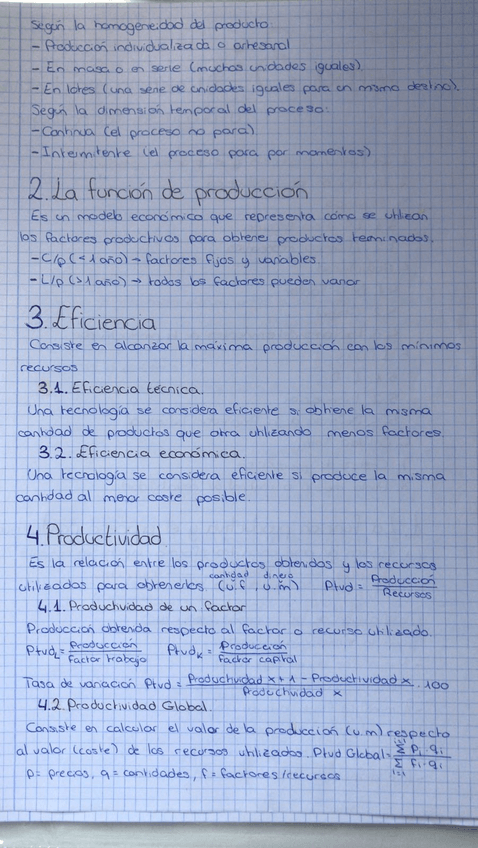 Según la homogeneidad del producto:
- Producción individualizada o artesanal
- En masa o en serie (muchas unidades iguales)
- En lotes (una serie de unidades iguales para un mismo destino).
Según la dimensión temporal del proceso:
- Continua (el proceso no para)
- Intermitente (el proceso para por momentos)
2. La función de producción
Es un modelo económico que representa cómo se utilizan
los factores productivos para obtener productos terminados.
- C/p (<1 año) → factores fijos y variables.
- L/p (>1 año) → todos los factores pueden variar
3. Eficiencia
Consiste en alcanzar la máxima producción con los mínimos
recursos
3.1. Eficiencia técnica.
Una tecnología se considera eficiente si obtiene la misma
cantidad de productos que otra utilizando menos factores.
3.2. Eficiencia económica.
Una tecnología se considera eficiente si produce la misma
cantidad al menor coste posible.
4. Productividad
Es la relación entre los productos obtenidos y los recursos
utilizados para obtenerlos (u.f, u.m) cantidad dinero Ptvd = Producción / Recursos
4.1. Productividad de un factor
Producción obtenida respecto al factor o recurso utilizado.
PtvdL = Producción / factor trabajo PtvdK = Producción / factor capital
Tasa de variación Ptvd = Productividad x+1 - Productividad x / Productividad x . 100
4.2. Productividad Global.
Consiste en calcular el valor de la producción (u.m) respecto
al valor (coste) de los recursos utilizados. Ptvd Global = Σ i=1 Pi · qi / Σ i=1 fi · qi
p = precios, q = cantidades, f = factores/recursos